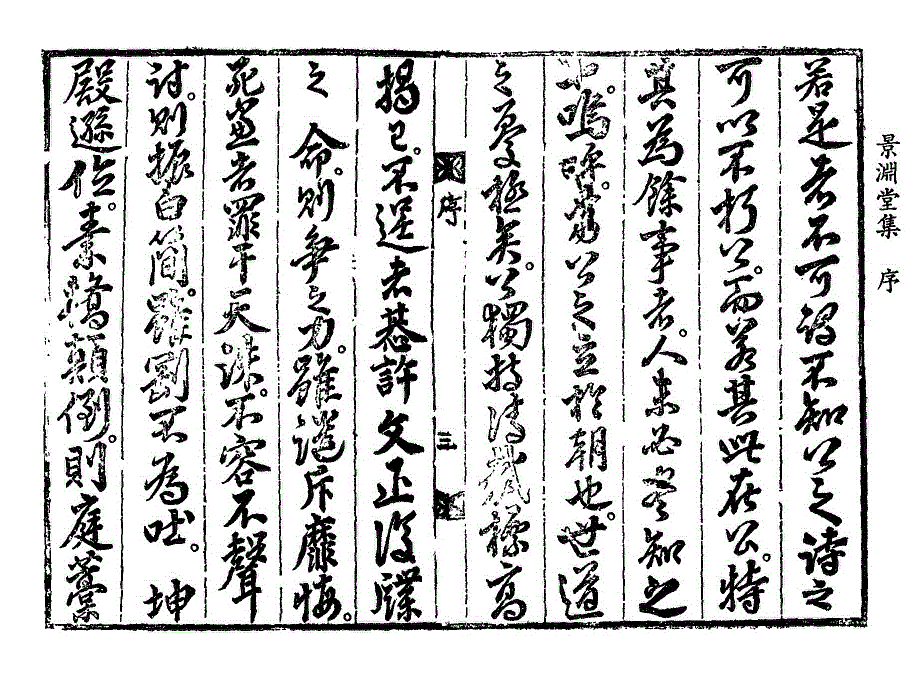 景淵堂集 序
若是者不可謂不知公之詩之
可以不朽公。而若其此在公。特
其為餘事者。人未必盡知之
嗚呼。當公之立於朝也。世道
之憂極矣。公獨持清裁標高
揭已。不逞者惎許文正復牒
之 命。則爭之力。雖譴斥靡悔。
死黨者罪干天誅。不容不聲
討。則振白簡。雖劇不為吐。 坤
殿遜位。素顛倒。則庭藁
序 三